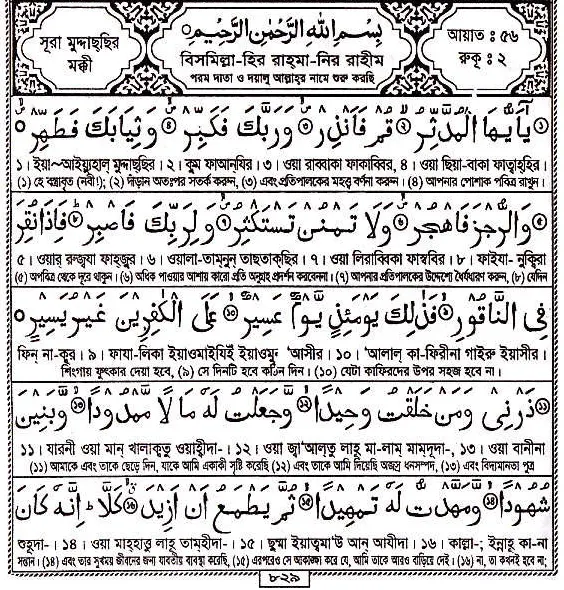 সূরা মুদ্দাছ্ছির
মক্কী
بِسْمِ اللّٰهِ الرَّحْمٰنِ الرَّحِيْمِ
বিসমিল্লা-হির রাহ্মা-নির রাহীম
পরম দাতা ও দয়ালু আল্লাহর নামে শুরু করছি
আয়াত : ৫৬
রুকূ : ২
يٰۤاَيُّهَا الْمُدَّثِّرُ ۙ قُمْ فَاَنْذِرْ ۙ وَرَبَّكَ فَكَبِّرْ ۙ وَثِيَابَكَ فَطَهِّرْ ۙ
১ । ইয়া~আইয়্যুহাল্ মুদ্দাছ্ছির । ২ । কুম্ ফাআন্যির্ ৩ । ওয়া রাব্বাকা ফাকাব্বির্, ৪ । ওয়া ছিয়া-বাকা ফাত্বাহ্হির্ ।
(১) হে বস্ত্রাবৃত (নবী!); (২) দাঁড়ান অতঃপর সতর্ক করুন, (৩) এবং প্রতিপালকের মহত্ত্ব বর্ণনা করুন । (৪) আপনার পোশাক পবিত্র রাখুন ।
وَالرُّجْزَ فَاهْجُرْ ۙ وَلَا تَمْنُنْ تَسْتَكْثِرُ ۙ وَلِرَبِّكَ فَاصْبِرْ ؕ فَاِذَا نُقِرَ
৫ । ওয়ার্ রুজ্যা ফাহ্জুর্ । ৬ । ওয়ালা-তাম্নুন্ তাছ্তাক্ছির্ । ৭ । ওয়া লিরাব্বিকা ফাস্ববির্ । ৮ । ফাইযা- নুক্বিরা
(৫) অপবিত্র থেকে দূরে থাকুন । (৬) অধিক পাওয়ার আশায় কারো প্রতি অনুগ্রহ প্রদর্শন করবেননা । (৭) আপনার প্রতিপালকের উদ্দেশ্যে ধৈর্যধারণ করুন, (৮) যেদিন
فِى النَّاقُوْرِ ۙ فَذٰلِكَ يَوْمَئِذٍ يَّوْمٌ عَسِيْرٌ ۙ عَلَى الْكٰفِرِيْنَ غَيْرُ يَسِيْرٍ
ফিন্ না-কূর । ৯ । ফাযা-লিকা ইয়াওমাইযিইঁ ইয়াওমুং 'আসীর । ১০ । 'আলাল্ কা-ফিরীনা গাইরু ইয়াসীর ।
শিংগায় ফুৎকার দেয়া হবে, (৯) সে দিনটি হবে কঠিন দিন । (১০) যেটা কাফিরদের উপর সহজ হবে না ।
ذَرْنِىْ وَمَنْ خَلَقْتُ وَحِيْدًا ۙ وَّجَعَلْتُ لَهٗ مَالًا مَّمْدُوْدًا ۙ وَّبَنِيْنَ
১১ । যারনী ওয়া মান্ খালাক্বতু ওয়াহীদা- । ১২ । ওয়া জ্বা'আল্তু লাহূ মা-লাম্ মাম্দূদা-, ১৩ । ওয়া বানীনা
(১১) আমাকে এবং তাকে ছেড়ে দিন, যাকে আমি একাকী সৃষ্টি করেছি (১২) এবং তাকে আমি দিয়েছি অজস্র ধনসম্পদ, (১৩) এবং বিদ্যমানতা পুত্র
شُهُوْدًا ۙ وَّمَهَّدْتُّ لَهٗ تَمْهِيْدًا ۙ ثُمَّ يَطْمَعُ اَنْ اَزِيْدَ ۙ كَلَّا ؕ اِنَّهٗ كَانَ
শুহূদা- । ১৪ । ওয়া মাহ্হাত্তু লাহূ তাম্হীদা- । ১৫ । ছুম্মা ইয়াত্বমা'উ আন্ আযীদা । ১৬ । কাল্লা-; ইন্নাহূ কা-না
সন্তান । (১৪) এবং তার সুখময় জীবনের জন্য যাবতীয় ব্যবস্থা করেছি, (১৫) এরপরেও সে আকাঙ্ক্ষা করে যে, আমি তাকে আরও বাড়িয়ে দেই । (১৬) না, তা কখনই হবে না;
৮২৯